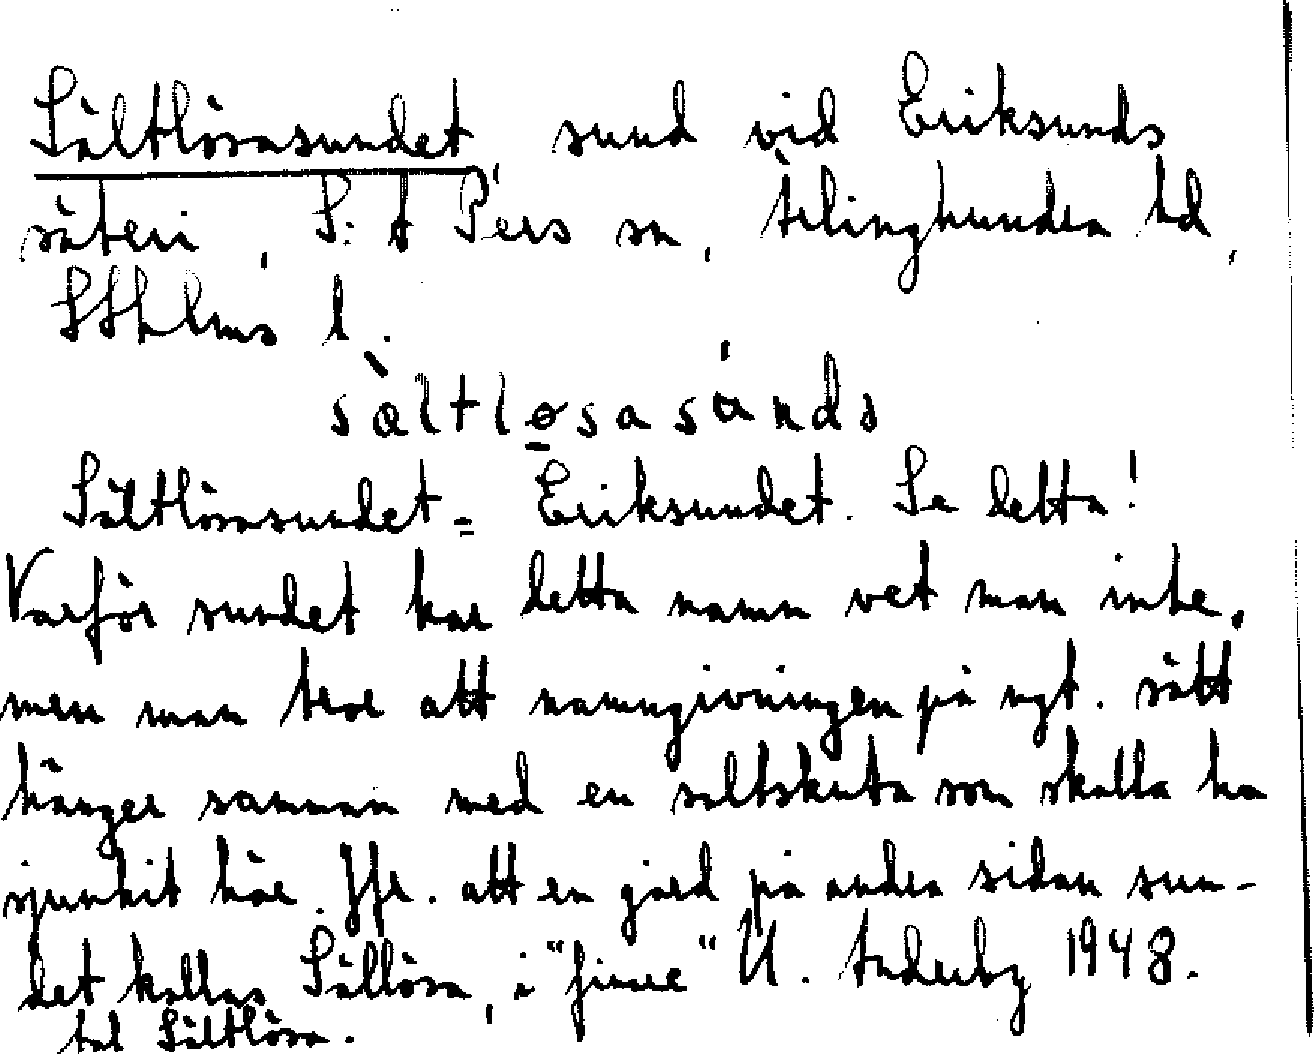 Sältlösasundet, sund vid Eriksunds
säteri, S:t Pers sn, Ärlinghundra hd,
Sthlms l.
sàltlo̲sasúndə
Sältlösasundet = Eriksundet. Se detta!
Varför sundet har detta namn vet man inte,
men man tror att namngivningen på ngt. sätt
hänger samman med en saltskuta som skulle ha
sjunkit här. Jfr. att en gård på andra sidan sun-
det kallas Sällösa, i "finare" U. 1948.
tal Sältlösa.